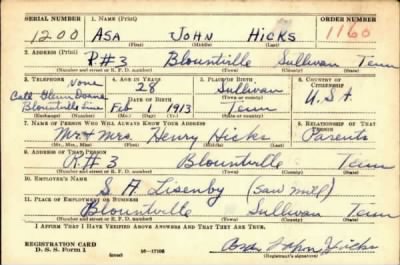 SERIAL NUMBER 1. NAME (Print) ORDER NUMBER
1200 ASA JOHN HICKS 1160
(First) (Middle) (Last)
2. ADDRESS (Print)
R.#3 Blountville Sullivan Tenn
(Number and street or R. F. D. number) (Town) (County) (State)
3. TELEPHONE 4. AGE IN YEARS 5. PLACE OF BIRTH 6. COUNTRY OF CITIZENSHIP
None 28 Sullivan
Call Glenn Doane DATE OF BIRTH (Town or county) U.S.A.
Blountville Line Feb 1 1913 Tenn
(Exchange) (Number) (Mo.) (Day) (Yr.) (State or country)
7. NAME OF PERSON WHO WILL ALWAYS KNOW YOUR ADDRESS 8. RELATIONSHIP OF THAT PERSON
Mr. & Mrs. Henry Hicks Parents
(Mr., Mrs., Miss) (First) (Middle) (Last)
9. ADDRESS OF THAT PERSON
R.#3 Blountville Tenn
(Number and street or R. F. D. number) (Town) (County) (State)
10. EMPLOYER'S NAME
S. A. Lisenby (Saw mill)
11. PLACE OF EMPLOYMENT OR BUSINESS
Blountville Sullivan Tenn
(Number and street or R. F. D. number) (Town) (County) (State)
I AFFIRM THAT I HAVE VERIFIED ABOVE ANSWERS AND THAT THEY ARE TRUE.
REGISTRATION CARD
D. S. S. Form 1 16—17105 Asa John Hicks